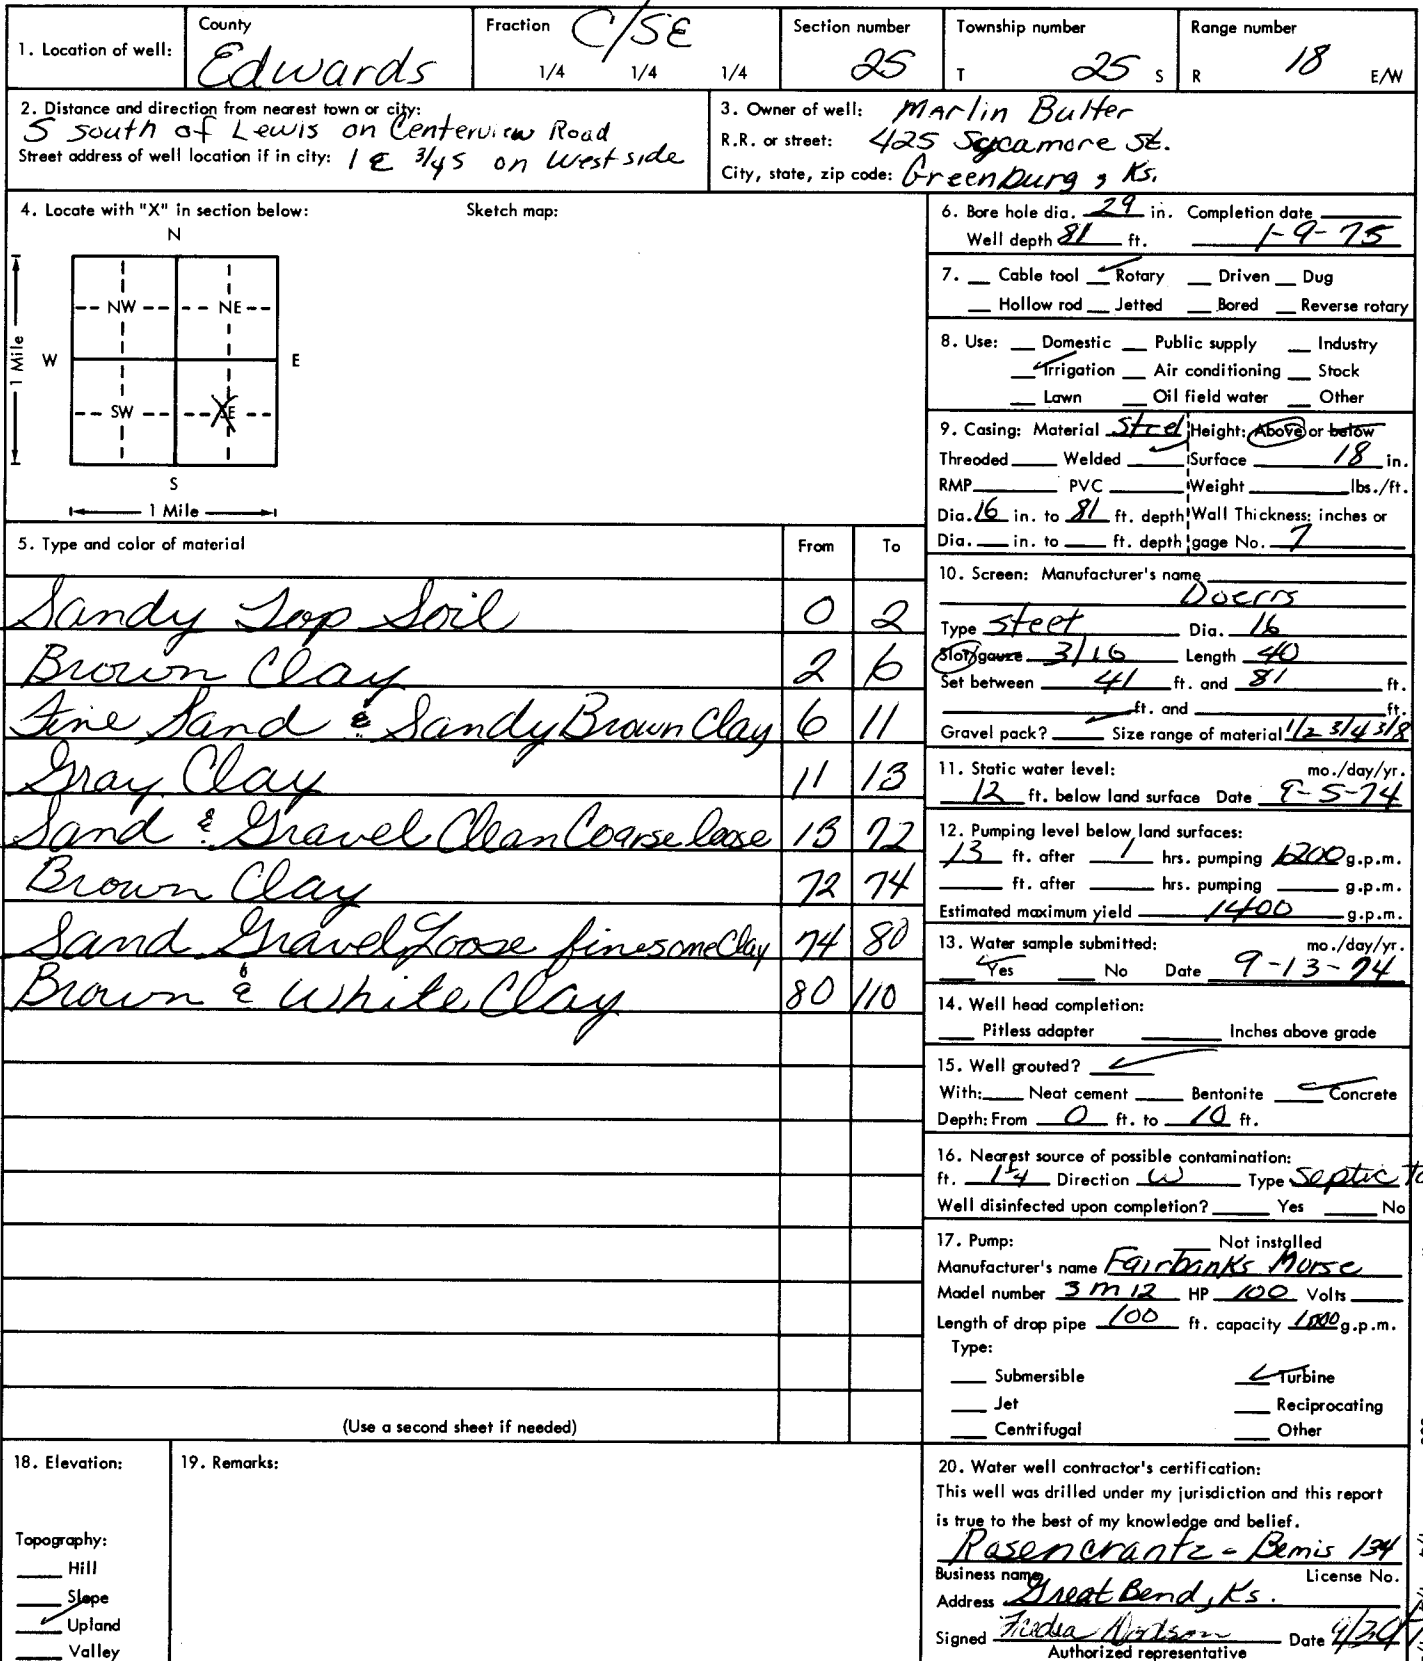 1. Location of well:
County
Edwards
Fraction C/SE
1/4 1/4 1/4
Section number
25
Township number
T 25 S
Range number
R 18 E/W
2. Distance and direction from nearest town or city:
5 south of Lewis on Centerview Road
Street address of well location if in city: 1 E 3/4 S on west side
3. Owner of well: Marlin Butter
R.R. or street: 425 Sycamore St.
City, state, zip code: Greenburg, Ks.
4. Locate with "X" in section below:
Sketch map:
N
NW NE
W E
1 Mile
SW SE
S
1 Mile
5. Type and color of material From To
Sandy Top Soil 0 2
Brown Clay 2 6
Fine Sand & Sandy Brown Clay 6 11
Gray Clay 11 13
Sand & Gravel Clean Coarse loose 13 72
Brown Clay 72 74
Sand Gravel Loose fine some Clay 74 80
Brown & White Clay 80 110
(Use a second sheet if needed)
6. Bore hole dia. 29 in. Completion date
Well depth 81 ft. 1-9-75
7. Cable tool ✓ Rotary Driven Dug
Hollow rod Jetted Bored Reverse rotary
8. Use: Domestic Public supply Industry
✓ Irrigation Air conditioning Stock
Lawn Oil field water Other
9. Casing: Material Steel Height: Above or below
Threaded Welded ✓ Surface 18 in.
RMP PVC Weight lbs./ft.
Dia. 16 in. to 81 ft. depth Wall Thickness: inches or
Dia. in. to ft. depth gage No. 7
10. Screen: Manufacturer's name
Doerrs
Type steel Dia. 16
Slot/gauze 3/16 Length 40
Set between 41 ft. and 81 ft.
ft. and ft.
Gravel pack? ✓ Size range of material 1/2 3/4 3/8
11. Static water level: mo./day/yr.
12 ft. below land surface Date 9-5-74
12. Pumping level below land surfaces:
13 ft. after 1 hrs. pumping 1200 g.p.m.
ft. after hrs. pumping g.p.m.
Estimated maximum yield 1400 g.p.m.
13. Water sample submitted: mo./day/yr.
✓ Yes No Date 9-13-74
14. Well head completion:
Pitless adapter Inches above grade
15. Well grouted? ✓
With: Neat cement Bentonite ✓ Concrete
Depth: From 0 ft. to 10 ft.
16. Nearest source of possible contamination:
ft. Direction W Type Septic
Well disinfected upon completion? Yes No
17. Pump: Not installed
Manufacturer's name Fairbanks Morse
Model number 3 M 12 HP 100 Volts
Length of drop pipe 100 ft. capacity 1000 g.p.m.
Type:
Submersible ✓ Turbine
Jet Reciprocating
Centrifugal Other
18. Elevation:
Topography:
Hill
Slope
✓ Upland
Valley
19. Remarks:
20. Water well contractor's certification:
This well was drilled under my jurisdiction and this report
is true to the best of my knowledge and belief.
Rosencrantz - Bemis 134
Business name License No.
Address Great Bend, Ks.
Signed Dodson Date 9/30/
Authorized representative